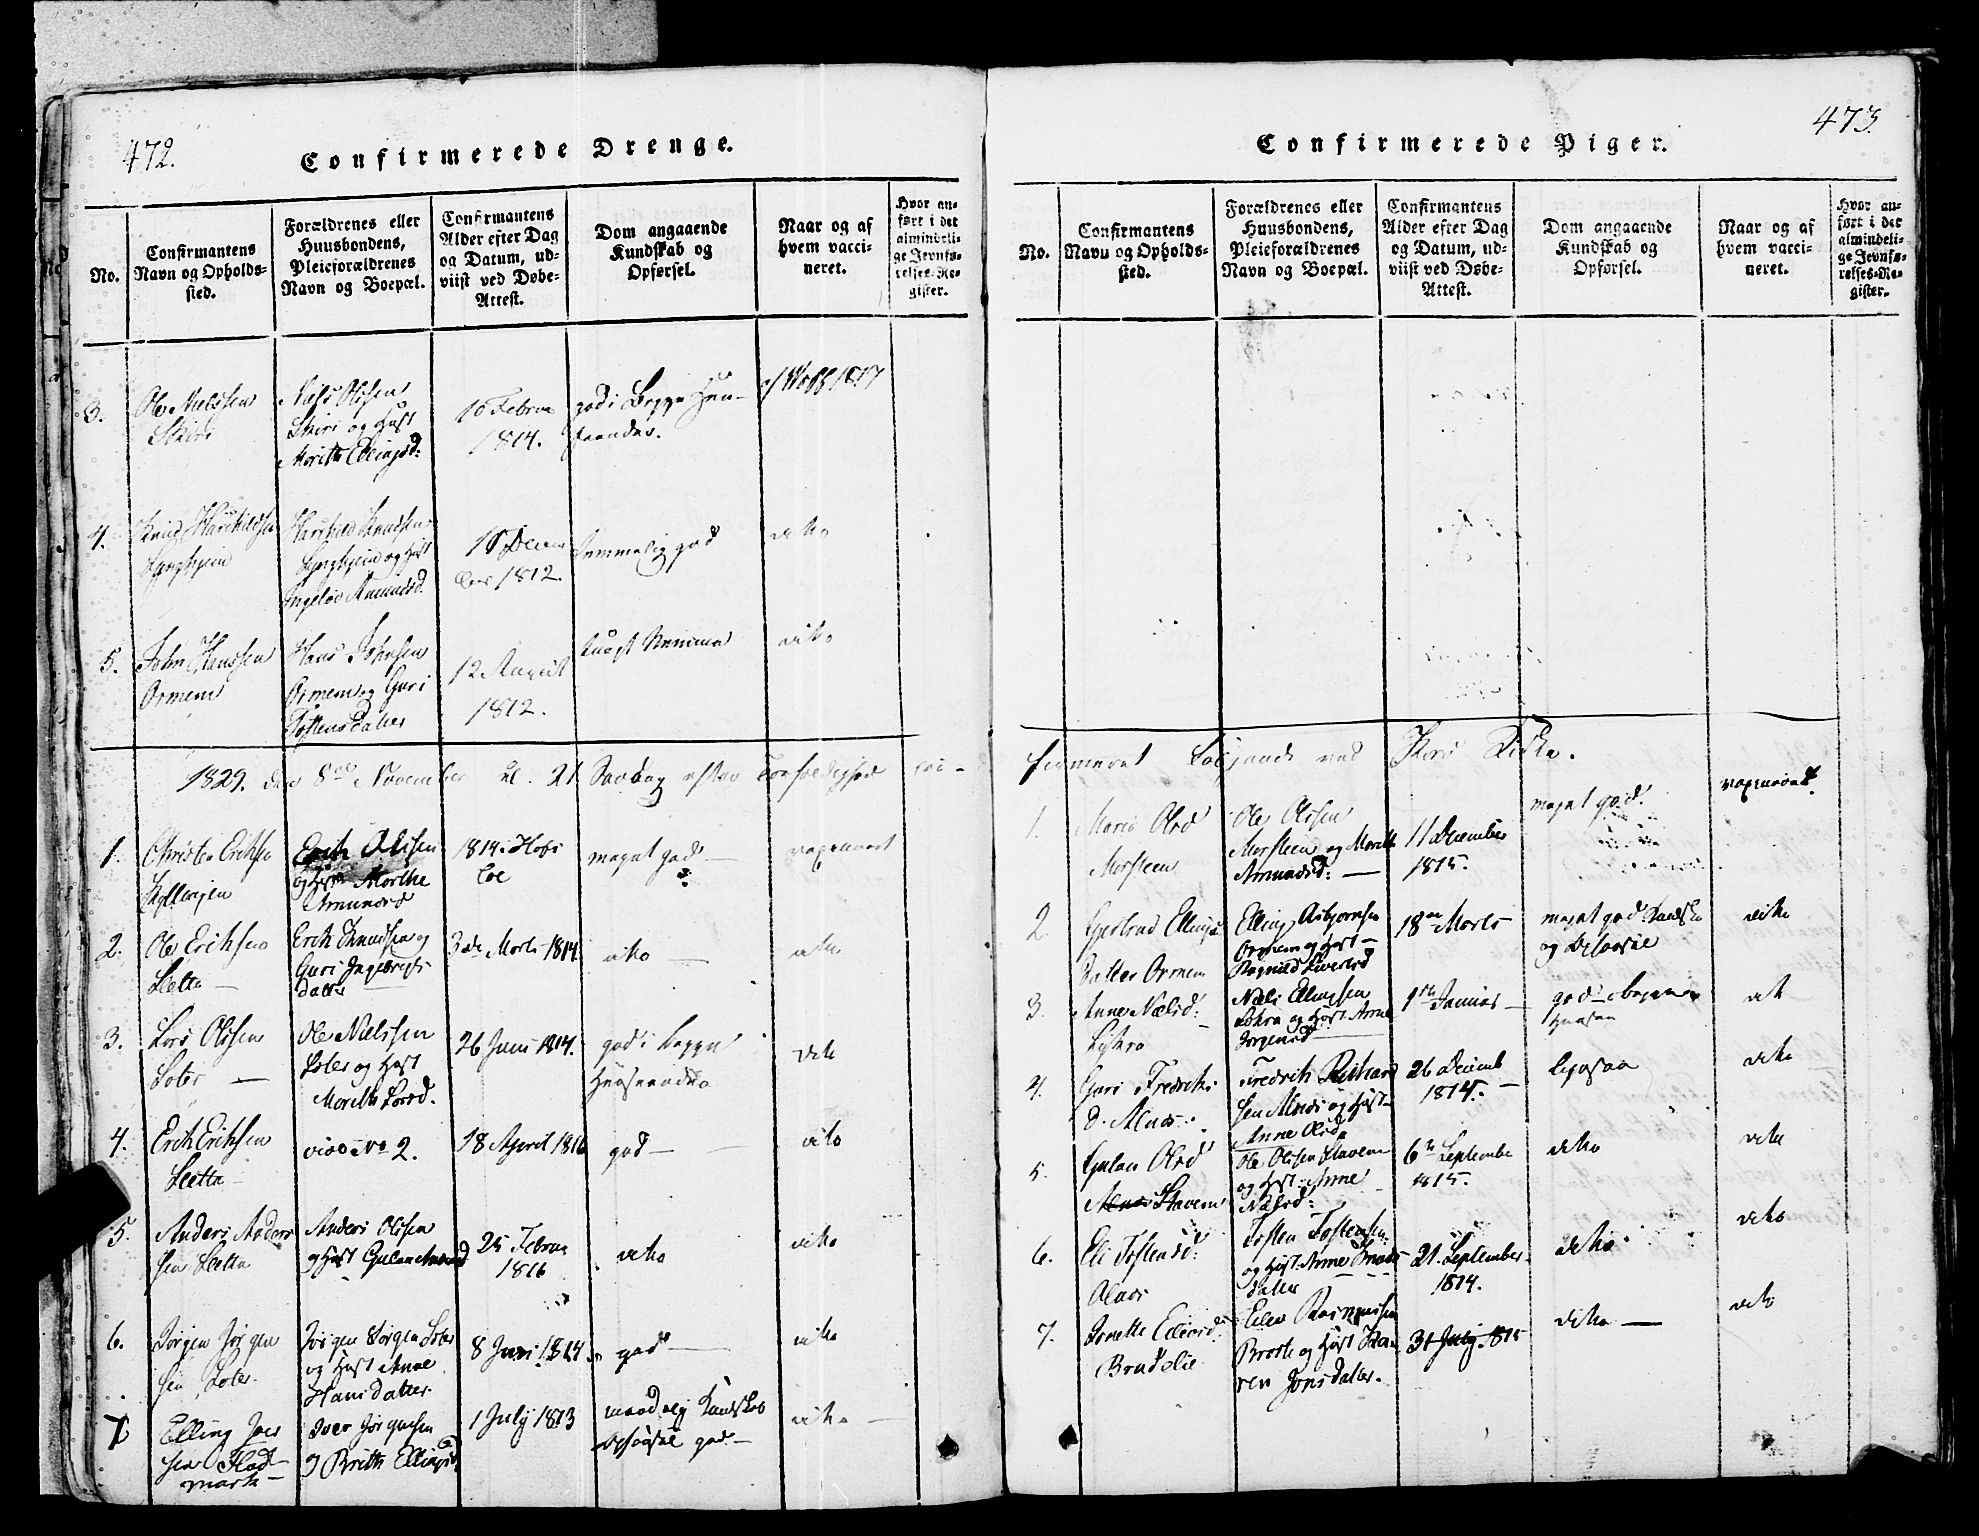 472.
Confirmerede Drenge.
No.
Confirmantens
Navn og Opholds-
sted.
Forældrenes eller
Huusbondens,
Pleieforældrenes
Navn og Boepæl.
Confirmantens
Alder efter Dag
og Datum, ud-
viist ved Døbe-
Attest.
Dom angaaende
Kundskab og
Opførsel.
Naar og af
hvem vacci-
neret.
Hvor an-
ført i det
almindeli-
ge Jevnfø-
relses-Re-
gister.
3.
Ole Nielssen
Skiri
Niels Olssen
Skiri og Hust
Morithe Ellingsd:
10 Februa
1814.
god i Begge Hen-
seender.
af Wolff 1817
4.
Knud Harchildsen
Knudsen
og Hust
Amundsd.
18 Decem
ber 1812.
temmelig god
dito
5.
John Hanssen
Ormem
Hans Johnsen
Ormem og Guri
Tostensdatter
12 August
1812.
svagt Nemme
dito
1829. den 8de November
21
Søndag efter Trefoldighed
1.
Christen Erichse
Kyllingen
Erich Olssen
og Hust Morthe
Amundsd
1814
meget god
vaxeneret
2.
Ole Erichsen
Sletta
Erich Knudsen og
Guri Ingebrigts
datter
3de Marts 1814.
dito
dito
3.
Lars Olssen
Soter
Ole Nielssen
Soter og Hust
Morithe Larsd.
26 Juni 1814.
god i begge
Henseender
dito
4.
Erich Erichsen
Sletta
vide No 2.
18 April 1816
god
dito
5.
Anders Anders
sen Sletta
Anders Olssen
og Hust Gulou Amunsd
25 Februa
1816
dito
dito
6.
Jørgen Jørgen
sen Soter.
Jørgen Jørgens Soter
og Hust Anne
Hansdatter
8 Juni 1814
god
dito
7
Elling Iver
sen Flad
mark
Iver Jørgensen
og Brithe Ellingsd
1 July 1813
maadelig Kundskab
Opførsel god
dito
473.
Confirmerede Piger.
No.
Confirmantens
Navn og Opholds-
sted.
Forældrenes eller
Huusbondens,
Pleieforældrenes
Navn og Boepæl.
Confirmantens
Alder efter Dag
og Datum, ud-
viist ved Døbe-
Attest.
Dom angaaende
Kundskab og
Opførsel.
Naar og af
hvem vacci-
neret.
Hvor an-
ført i det
almindeli-
ge Jevnfø-
relses-Re-
gister.
firmeret følgende ved Kors Kirke.
1.
Marie Olsd
Morsteen
Ole Olssen
Morsteen og Morithe
Amundsd:
11 December
1815.
meget god.
vaxeneret.
2.
Gjertrud Ellings
datter Ormem
Elling Asbjornsen
Ormem og Hust
Ragnild Siversd
18de Marts
meget god Kundska
og Opførsel
dito
3.
Anne Nielsd:
Niels Ellingsen
og Hust Anne
Jørgensd
1ste Januar
god i begge
Hensee
dito
4.
Guri Fredrichs
d. Alnæs.
Fredrich Richard
sen Alnæs og Hust
Anne Olsd
26 Decemb
1814.
ligesaa
dito
5.
Gulou Olsd
Stavem
Ole Olssen Stavem
og Hust Anne
Nielsd:
6te Septembe
1815.
dito
dito
6.
Eli Tostensd:
Alnæs
Tosten Tostensen
og Hust Anne Knuds
datter
21 September
1814.
dito
dito
7.
Bradelie
Eiler Rasmussen
og Hust Ka
ren Jonsdatter.
31 July 1815
dito
dito